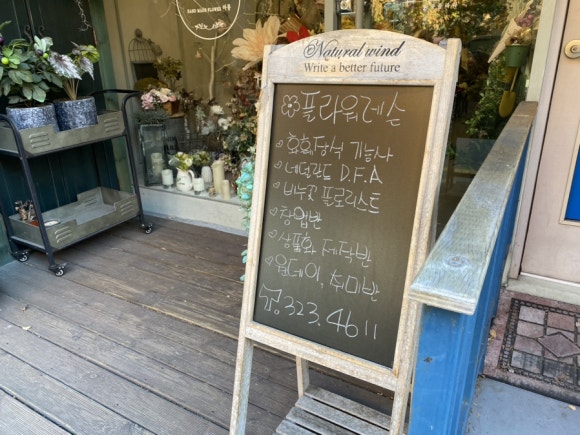 HAND MADE FLOWER 카페
Natural wind
Write a better future
플라워레슨
화훼장식 기능사
네덜란드 D.F.A
비누꽃 플로리스트
창업반
상품화 제작반
원데이, 취미반
323.4611